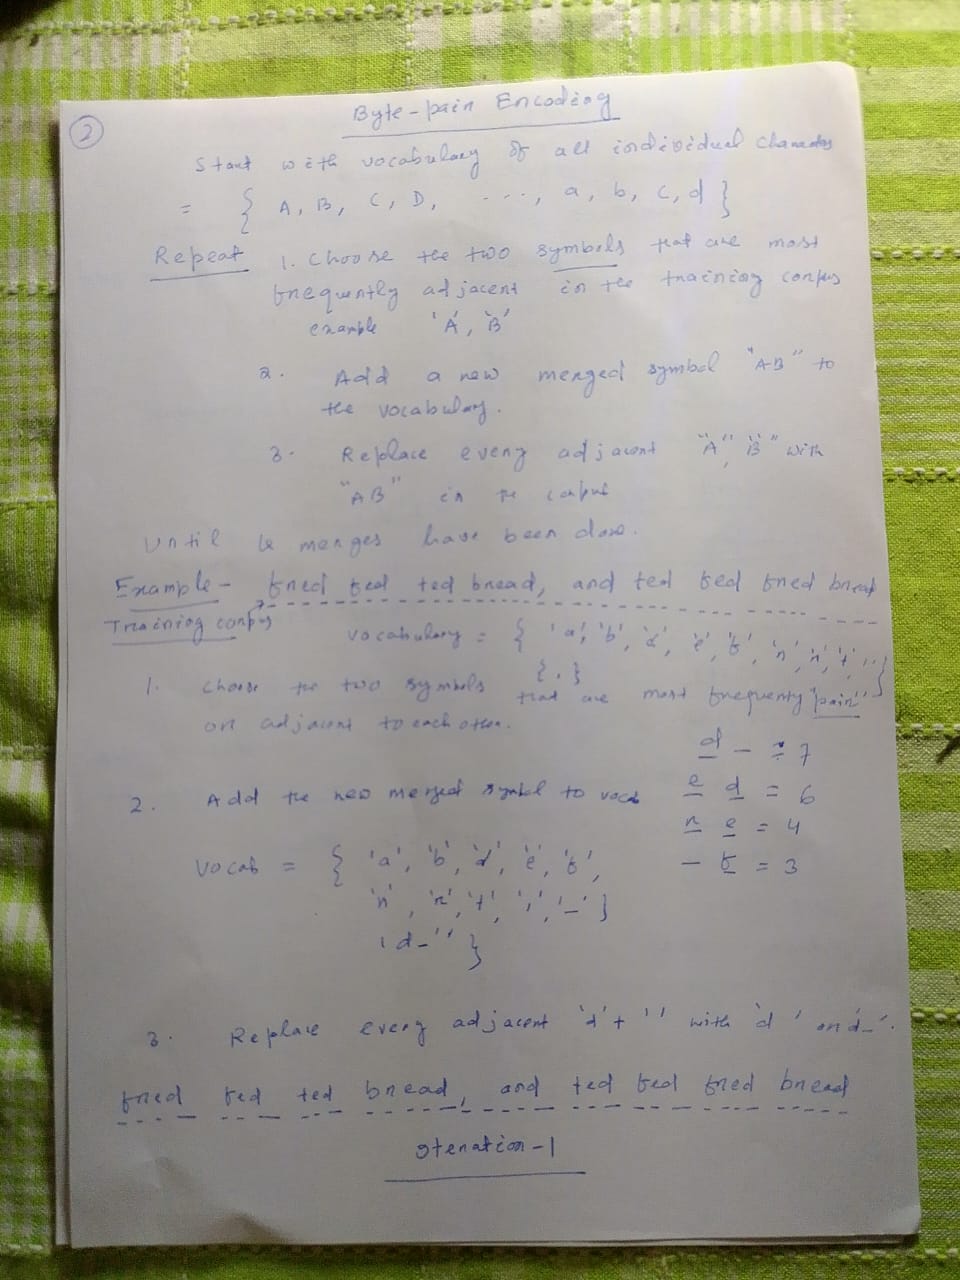 2
Byte-pair Encoding
Start with vocabulary of all individual characters
= { A, B, C, D, ...., a, b, c, d }
Repeat 1. Choose the two symbols that are most
frequently adjacent in the training corpus
example 'A', 'B'
2. Add a new merged symbol "AB" to
the vocabulary.
3. Replace every adjacent "A", "B" with
"AB" in the corpus
Until k merges have been done.
Example - fred fed ted bread, and ted fed fred bread
Training corpus
vocabulary = { 'a', 'b', 'd', 'e', 'f', 'n', 'r', 't', ',' }
{ . }
1. Choose the two symbols that are most frequently "pair"
or adjacent to each other.
d _ = 7
2. Add the new merged symbol to vocab
e d = 6
r e = 4
Vocab = { 'a', 'b', 'd', 'e', 'f',
_ f = 3
'n', 'r', 't', ',', '_' }
'd_'' }
3. Replace every adjacent 'd' + '' with 'd ' or 'd_'.
fred fed ted bread, and ted fed fred bread
Iteration-1